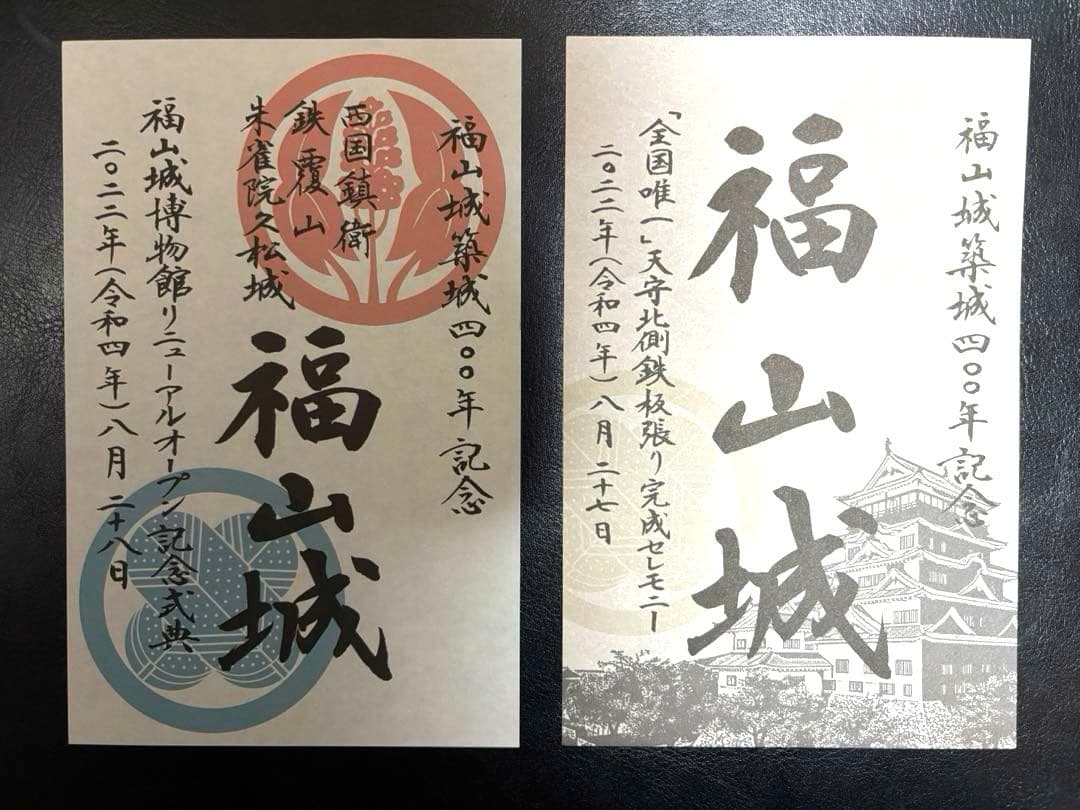 福山城築城四〇〇年記念
西国鎮衛
鉄覆山
朱雀院久松城
福山城
福山城博物館リニューアルオープン記念式典
二〇二二年(令和四年)八月二十八日
福山城築城四〇〇年記念
福山城
「全国唯一」天守北側鉄板張り完成セレモニー
二〇二二年(令和四年)八月二十七日